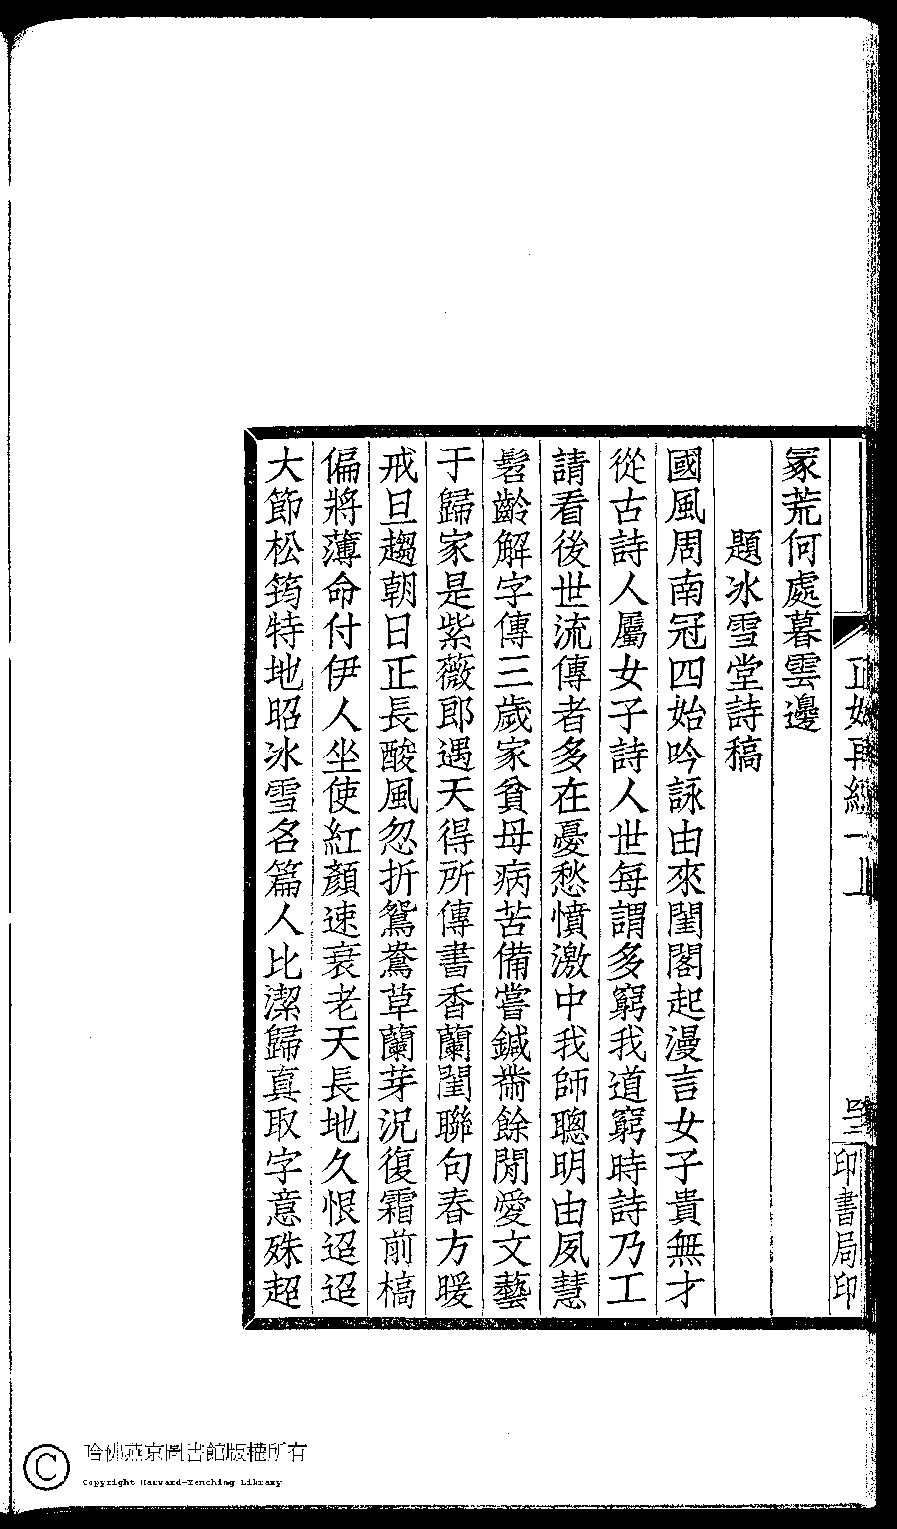 冢荒何處暮雲邊
題冰雪堂詩稿
國風周南冠四始吟詠由來閨閣起漫言女子貴無才
從古詩人屬女子詩人世每謂多窮我道窮時詩乃工
請看後世流傳者多在憂愁憤激中我師聰明由夙慧
髫齡解字傳三歲家貧母病苦備嘗鍼黹餘閒愛文藝
于歸家是紫薇郎遇天得所傳書香蘭閨聯句春方暖
戒旦趨朝日正長酸風忽折鴛鴦草蘭芽況復霜前槁
偏將薄命付伊人坐使紅顏速衰老天長地久恨迢迢
大節松筠特地昭冰雪名篇人比潔歸真取字意殊超
印書局印
哈佛燕京圖書館版權所有
Copyright Harvard-Yenching Library